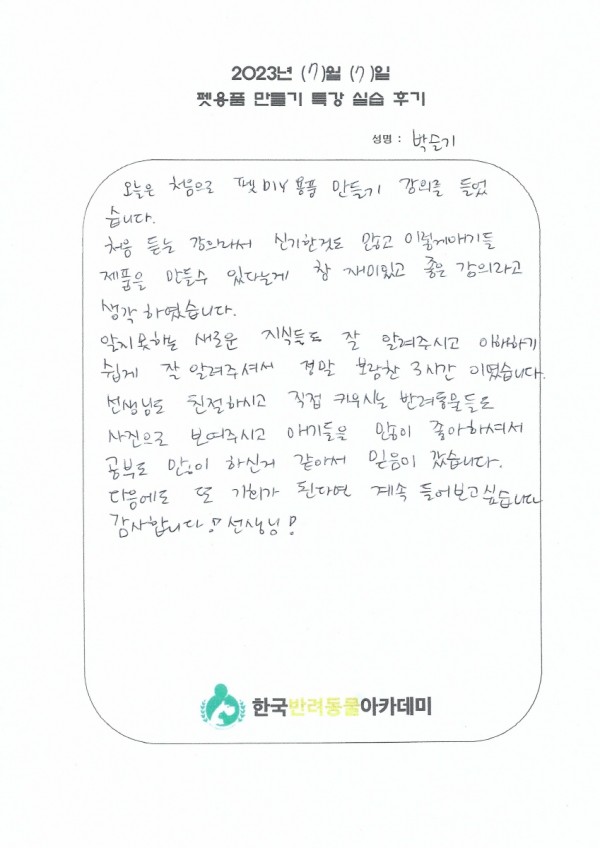 2023년 (7)월 (7)일
펫용품 만들기 특강 실습 후기
성명 : 박슬기
오늘은 처음으로 펫DIY용품 만들기 강의를 들었
습니다.
처음 듣는 강의라서 신기한것도 많고 이렇게애기들
제품을 만들수 있다는게 참 재미있고 좋은 강의라고
생각 하였습니다.
알지못하는 새로운 지식들도 잘 알려주시고 이해하기
쉽게 잘 알려주셔서 정말 보람찬 3시간 이였습니다.
선생님도 친절하시고 직접 키우시는 반려동물들도
사진으로 보여주시고 애기들을 많이 좋아하셔서
공부도 많이 하신거 같아서 믿음이 갔습니다.
다음에도 또 기회가 된다면 계속 들어보고싶습니다
감사합니다! 선생님!
한국반려동물아카데미